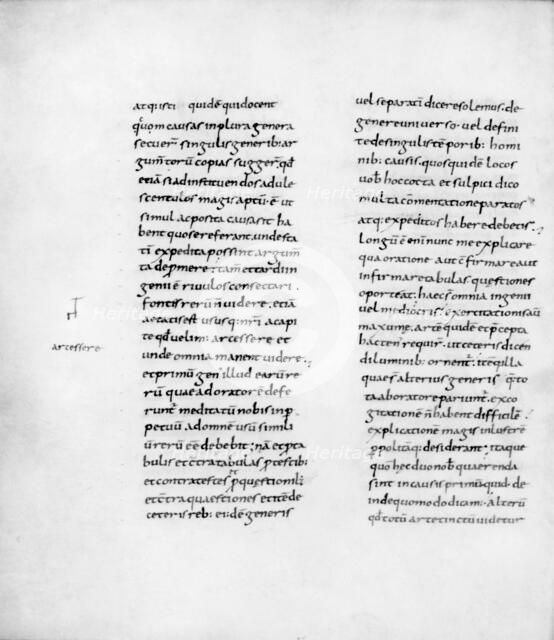 atq; isti quidē qui docent
quom causas in plura genera
secuer̄ singulis generib; ar
gum̄torū copias sugger̄ qđ
etiā si ad instituendos adule
scentulos magis aptū ē ut
simul ac posita causa sit ha
beant quo se referant. unde sta
tī expedita possint argum̄
ta dep̄mere; tam̄ et tardi in
genii ē rivulos consectari.
fontis rerū n̄ videre. etiā
aetatis est ususq; nr̄i a capi
te qđ velim; arcessere et
arcessere
unde omnia manent videre.
et primū gen; illud earū re
rū quae ad oratorē defe
runt̄ meditatū nobis in p̱
petuū ad omnē usū simili
ū rerū eē debebit; nā et p̱ ta
bulis et cōtra tabulas p̱ testib;
et contra testes p̱ questionib;
et cōtra quaestiones et itē de
ceteris reb; ei; dē generis
vel separatī dicere solemus. de
genere universo. vel defini
te de singulis tēporib; homi
nib; causis. quos quidē locos
vob̄ hoc cotta et sulpici dico
multa cōmentatione paratos
atq; expeditos habere debetis.
Longū ē eni nunc me explicare
qua oratione aut cōfirmare aut
infirmare tabulas. questiones
oporteat. haec sī omnia ingenii
vel mediocris; exercitationis aū
maxume. artē quidē et p̄cepta
hacten̄ requir̄. ut certis dicen
di luminib; ornent̄. itēq; illa
quae sī alterius generis q̄ to
ta ab oratore pariunt̄. exco
gitationē n̄ habent difficilē
explicationē magis inlustrē
p̱politāq; desiderant; itaque
quo hęc duo nob̄ quaerenda
sint in causis primū quid. de
inde quomodo dicam; Alterū
qđ totū arte tinctū videtur
Heritage